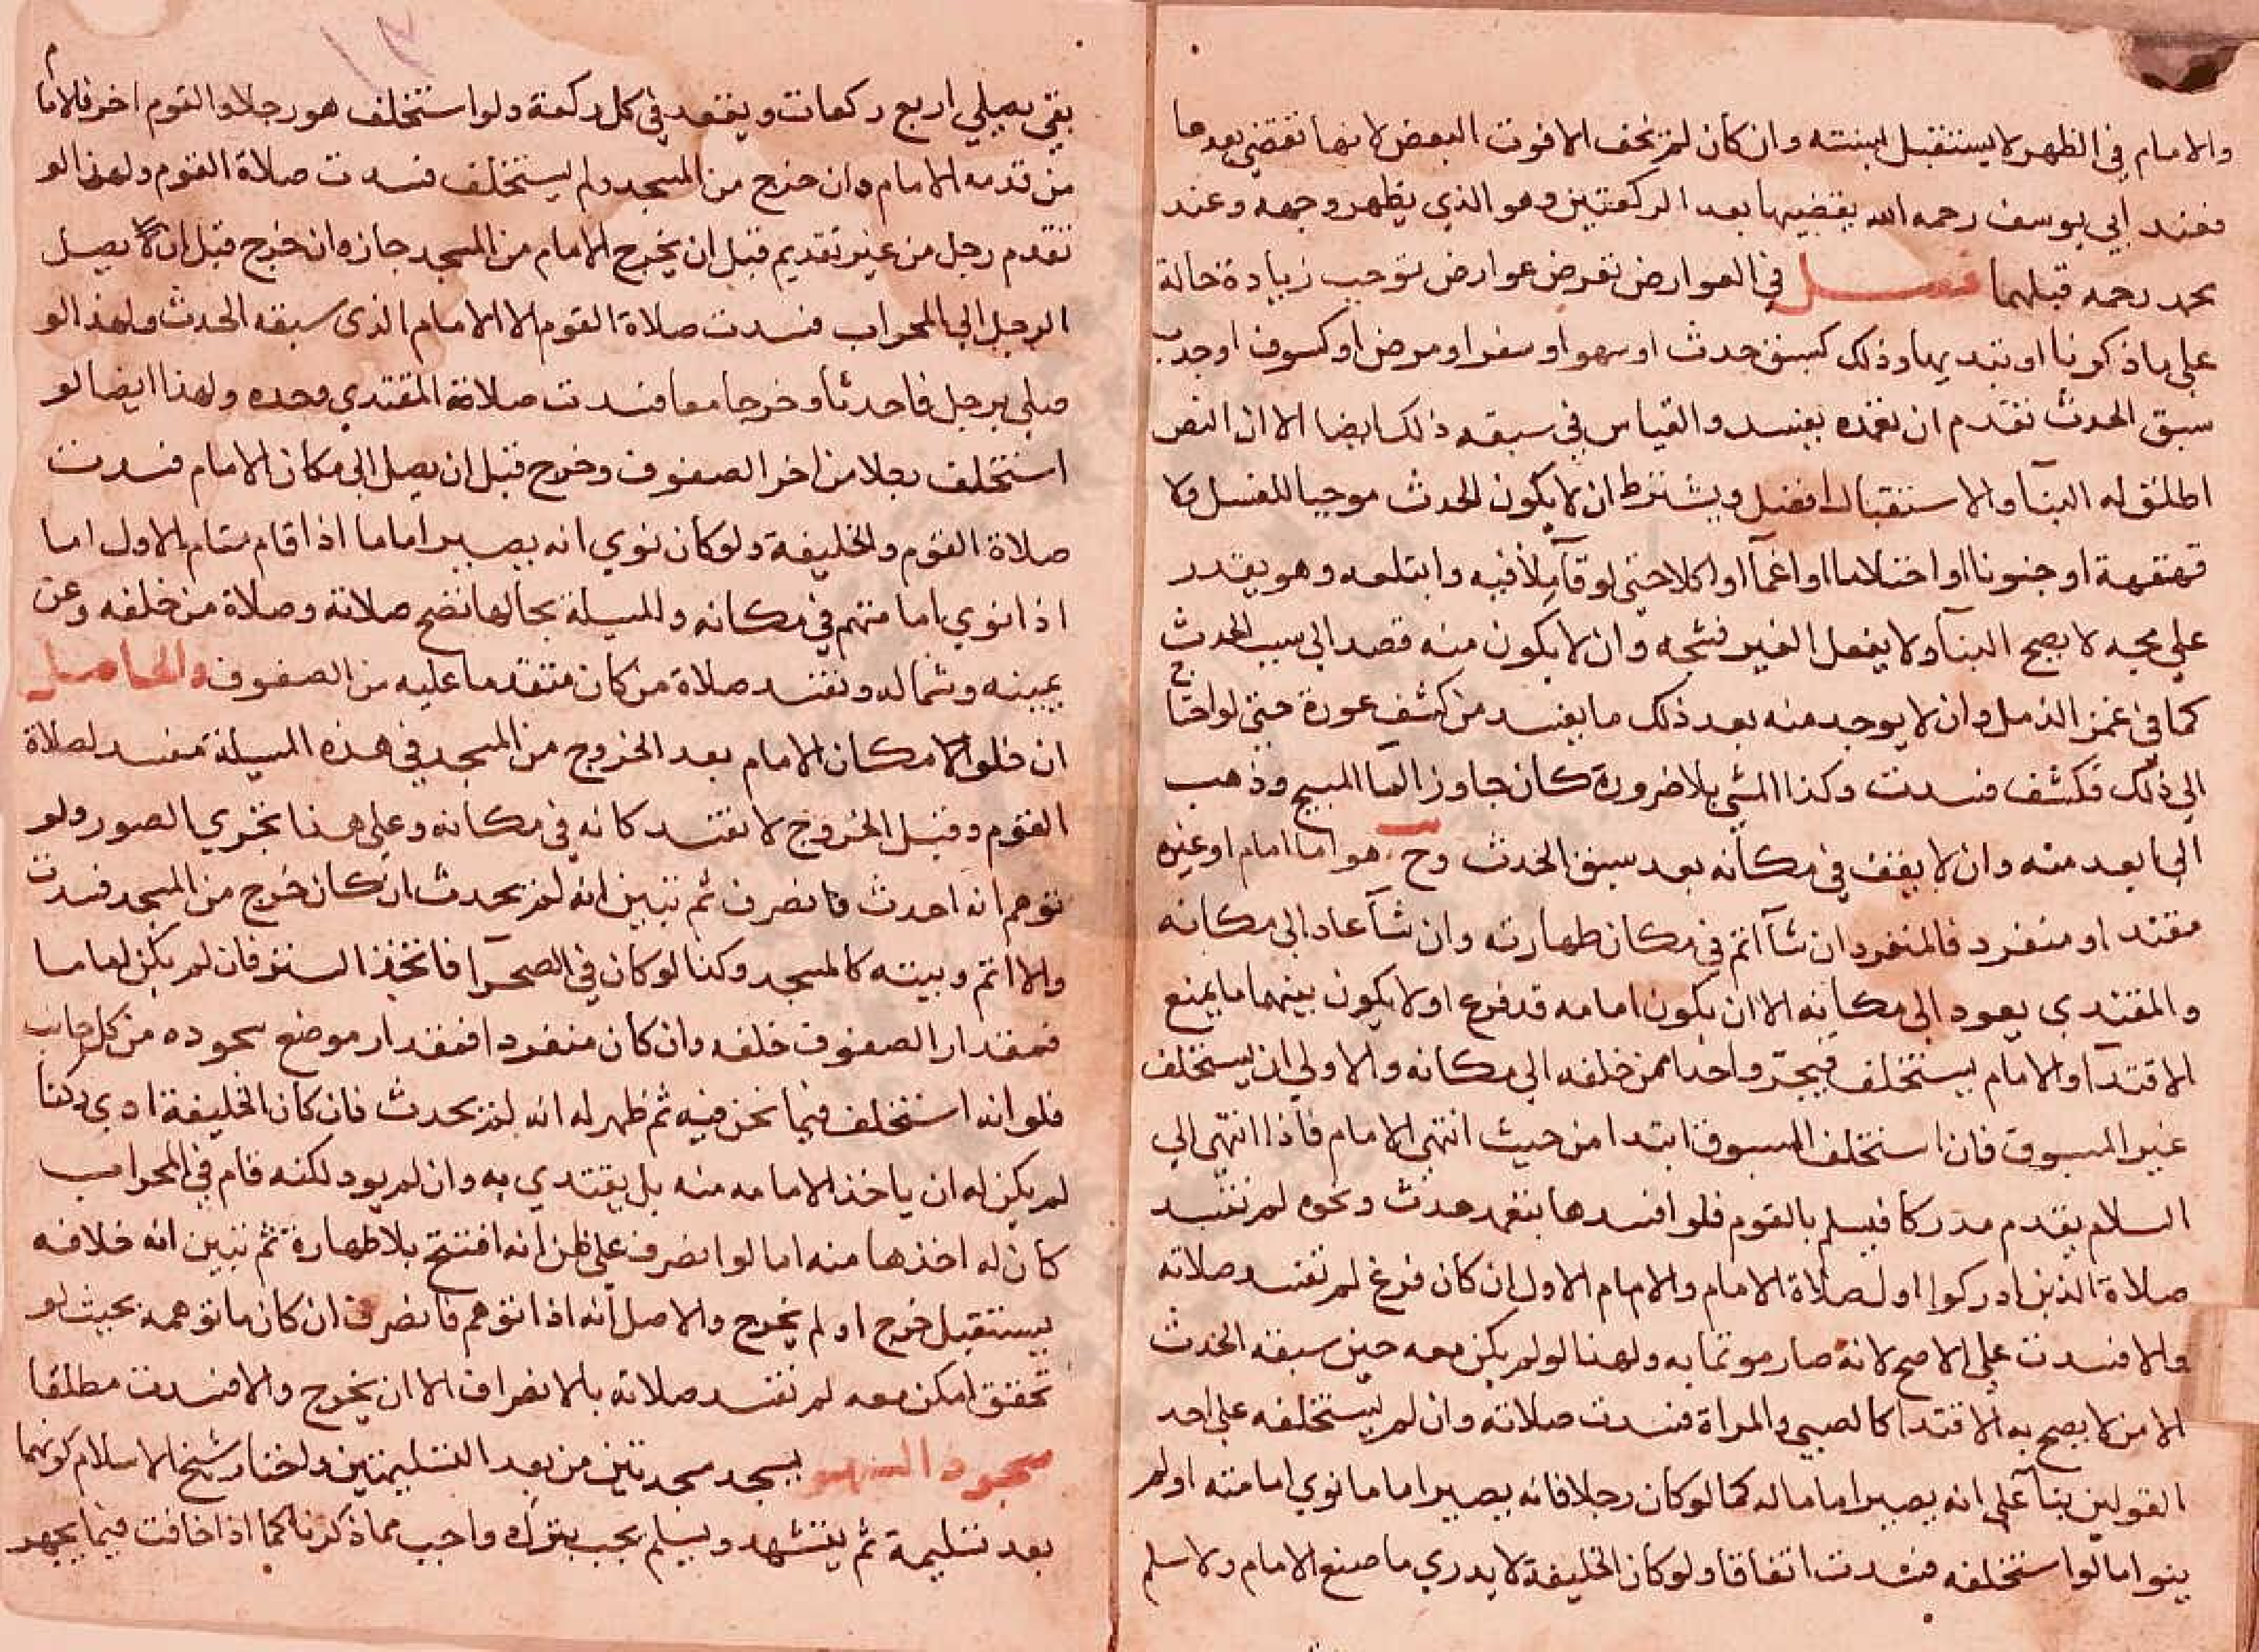 والامام في الظهر لا يستقبل لسنته وان كان لم يخف الا فوت البعض لانها تقضى بعدها
فعند ابي يوسف رحمه الله يقضيها بعد الركعتين وهو الذي يظهر وجهه وعند
محمد رحمه قبلهما فصل في العوارض تعرض عوارض توجب زيادة حالة
على ما ذكرنا او تبديها وذلك كسبق حدث او سهو او سفر او مرض او كسوف او جدب
سبق الحدث تقدم ان تعمده يفسد والقياس في سبقه ذلك ايضا الا ان النص
اطلق له البنآ والاستقبال افضل ويشترط ان لا يكون الحدث موجبا للغسل ولا
قهقهة او جنونا او احتلاما او اغمآ او اكلا حتى لو قآ ملأ فيه وابتلعه وهو يقدر
على مجه لا يصح البنآ ولا بفعل الغير فشجه وان لا يكون منه قصد الى سبب الحدث
كما في غمز الدمل وان لا يوجد منه بعد ذلك ما يفسد من كشف عورة حتى لو احتاج
الى ذلك فكشف فسدت وكذا المشي بلا ضرورة كان جاوز المآ المبيح وذهب
الى ابعد منه وان لا يقف في مكانه بعد سبق الحدث وح هو اما امام او غيره
مقتد او منفرد فالمنفرد ان شآ اتم في مكان طهارته وان شآ عاد الى مكانه
والمقتدي يعود الى مكانه الا ان يكون امامه قد فرغ او لا يكون بينهما ما يمنع
الاقتدآ والامام يستخلف فيجر واحدا ممن خلفه الى مكانه والاولى ان يستخلف
غير المسبوق فان استخلف المسبوق ابتدا من حيث انتهى الامام فاذا انتهى الى
السلام يقدم مدركا فيسلم بالقوم فلو افسدها بتعمد حدث ونحوه لم تفسد
صلاة الذين ادركوا اول صلاة الامام والامام الاول ان كان فرغ لم تفسد صلاته
والا فسدت على الاصح لانه صار موتما به ولهذا لو لم يكن معه حين سبقه الحدث
الا من لا يصح به الاقتدا كالصبي والمراة فسدت صلاته وان لم يستخلفه على احد
القولين بنآ على انه يصير اماما له كما لو كان رجلا فانه يصير اماما نوي امامته او لم
ينو اما لو استخلفه فسدت اتفاقا ولو كان الخليفة لا يدري ما صنع الامام ولا سلم
بقي يصلي اربع ركعات ويقعد في كل ركعة ولو استخلف هو رجلا والقوم اخر فالامام
من قدمه الامام وان خرج من المسجد ولم يستخلف فسدت صلاة القوم ولهذا لو
تقدم رجل من غير تقديم قبل ان يخرج الامام من المسجد جاز وان خرج قبل ان يصل
الرجل الى المحراب فسدت صلاة القوم الا الامام الذي سبقه الحدث ولهذا لو
صلى برجل فاحدثا وخرجا معا فسدت صلاة المقتدي وحده ولهذا ايضا لو
استخلف رجلا من اخر الصفوف وخرج قبل ان يصل الى مكان الامام فسدت
صلاة القوم والخليفة ولو كان نوي انه يصير اماما اذا قام مقام الاول اما
اذا نوي امامتهم في مكانه والمسيلة بحالها تصح صلاته وصلاة من خلفه وعن
يمينه وشماله وتفسد صلاة من كان متقدما عليه من الصفوف والحاصل
ان خلو مكان الامام بعد الخروج من المسجد في هذه المسيلة مفسد لصلاة
القوم وقبل الخروج لا تفسد كانه في مكانه وعلى هذا تجري الصور ولو
توهم انه احدث فانصرف ثم تبين انه لم يحدث ان كان خرج من المسجد فسدت
والا اتم وبيته كالمسجد وكذا لو كان في الصحرآ فاتخذ الستر فان لم يكن اماما
فمقدار الصفوف خلفه وان كان منفردا فمقدار موضع سجوده من كل جانب
فلو انه استخلف فيما نحن فيه ثم ظهر له انه لم يحدث فان كان الخليفة ادي ركنا
لم يكن له ان ياخذ الامامه منه بل يقتدي به وان لم يود لكنه قام في المحراب
كان له اخذها منه اما لو انصرف على ظن انه افتتح بلا طهارة ثم تبين انه خلافه
يستقبل خرج او لم يخرج والاصل انه اذا توهم فانصرف ان كان ما توهمه بحيث لو
تحقق امكن معه لم تفسد صلاته بالانصراف الا ان يخرج والا فسدت مطلقا
سجود السهو يسجد سجدتين من بعد التسليمتين واختار شيخ الاسلام كونهما
بعد تسليمة ثم يتشهد ويسلم يجب بترك واجب مما ذكرنا كما اذا خافت فيما يجهر